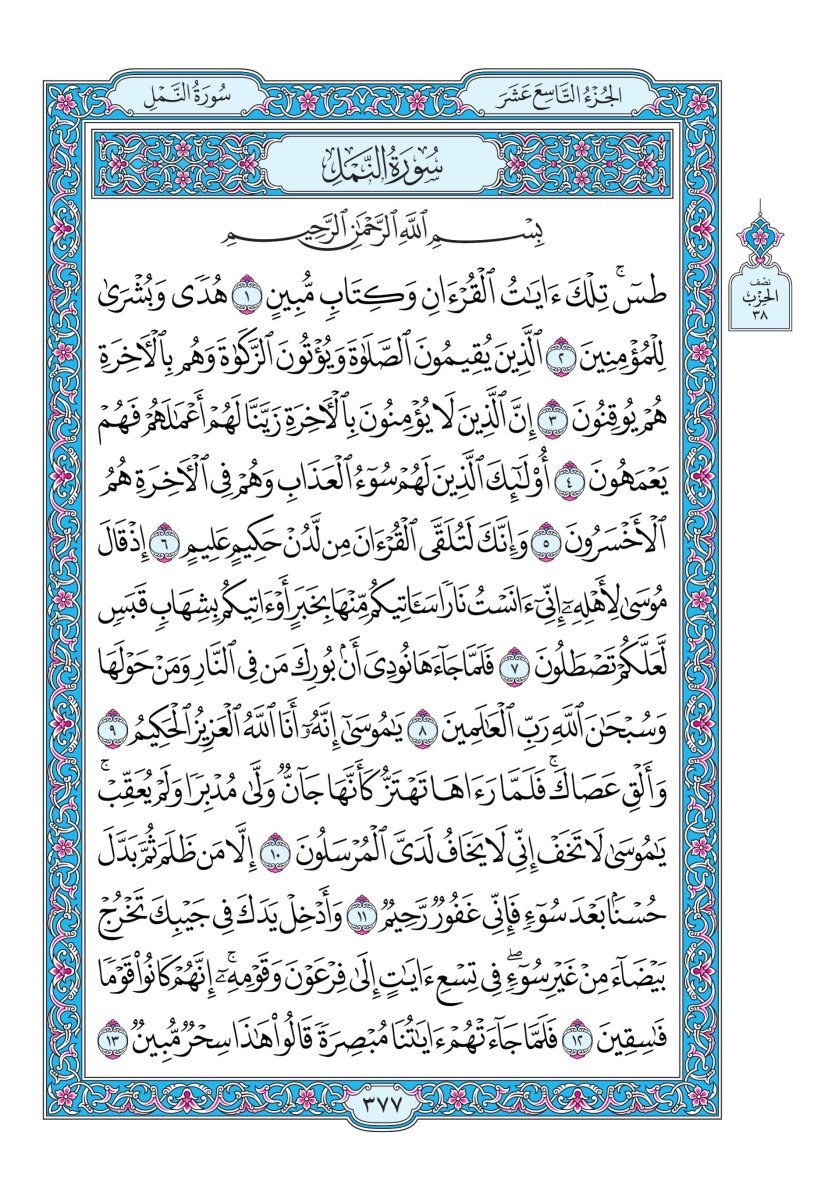 الجُزْءُ التَّاسِعَ عَشَرَ
سُورَةُ النَّمْلِ
سُورَةُ النَّمْلِ
بِسْمِ ٱللَّهِ ٱلرَّحْمَٰنِ ٱلرَّحِيمِ
طسٓۚ تِلْكَ ءَايَٰتُ ٱلْقُرْءَانِ وَكِتَابٍ مُّبِينٍ ١ هُدًى وَبُشْرَىٰ
لِلْمُؤْمِنِينَ ٢ ٱلَّذِينَ يُقِيمُونَ ٱلصَّلَوٰةَ وَيُؤْتُونَ ٱلزَّكَوٰةَ وَهُم بِٱلْأٓخِرَةِ
هُمْ يُوقِنُونَ ٣ إِنَّ ٱلَّذِينَ لَا يُؤْمِنُونَ بِٱلْأٓخِرَةِ زَيَّنَّا لَهُمْ أَعْمَٰلَهُمْ فَهُمْ
يَعْمَهُونَ ٤ أُو۟لَٰٓئِكَ ٱلَّذِينَ لَهُمْ سُوٓءُ ٱلْعَذَابِ وَهُمْ فِى ٱلْأٓخِرَةِ هُمُ
ٱلْأَخْسَرُونَ ٥ وَإِنَّكَ لَتُلَقَّى ٱلْقُرْءَانَ مِن لَّدُنْ حَكِيمٍ عَلِيمٍ ٦ إِذْ قَالَ
مُوسَىٰ لِأَهْلِهِۦٓ إِنِّىٓ ءَانَسْتُ نَارًا سَـَٔاتِيكُم مِّنْهَا بِخَبَرٍ أَوْ ءَاتِيكُم بِشِهَابٍ قَبَسٍ
لَّعَلَّكُمْ تَصْطَلُونَ ٧ فَلَمَّا جَآءَهَا نُودِىَ أَنۢ بُورِكَ مَن فِى ٱلنَّارِ وَمَنْ حَوْلَهَا
وَسُبْحَٰنَ ٱللَّهِ رَبِّ ٱلْعَٰلَمِينَ ٨ يَٰمُوسَىٰٓ إِنَّهُۥٓ أَنَا ٱللَّهُ ٱلْعَزِيزُ ٱلْحَكِيمُ ٩
وَأَلْقِ عَصَاكَۚ فَلَمَّا رَءَاهَا تَهْتَزُّ كَأَنَّهَا جَآنٌّ وَلَّىٰ مُدْبِرًا وَلَمْ يُعَقِّبْۚ
يَٰمُوسَىٰ لَا تَخَفْ إِنِّى لَا يَخَافُ لَدَىَّ ٱلْمُرْسَلُونَ ١٠ إِلَّا مَن ظَلَمَ ثُمَّ بَدَّلَ
حُسْنًۢا بَعْدَ سُوٓءٍ فَإِنِّى غَفُورٌ رَّحِيمٌ ١١ وَأَدْخِلْ يَدَكَ فِى جَيْبِكَ تَخْرُجْ
بَيْضَآءَ مِنْ غَيْرِ سُوٓءٍۖ فِى تِسْعِ ءَايَٰتٍ إِلَىٰ فِرْعَوْنَ وَقَوْمِهِۦٓۚ إِنَّهُمْ كَانُوا۟ قَوْمًا
فَٰسِقِينَ ١٢ فَلَمَّا جَآءَتْهُمْ ءَايَٰتُنَا مُبْصِرَةً قَالُوا۟ هَٰذَا سِحْرٌ مُّبِينٌ ١٣
نصْف
الحِزْبُ
٣٨
٣٧٧